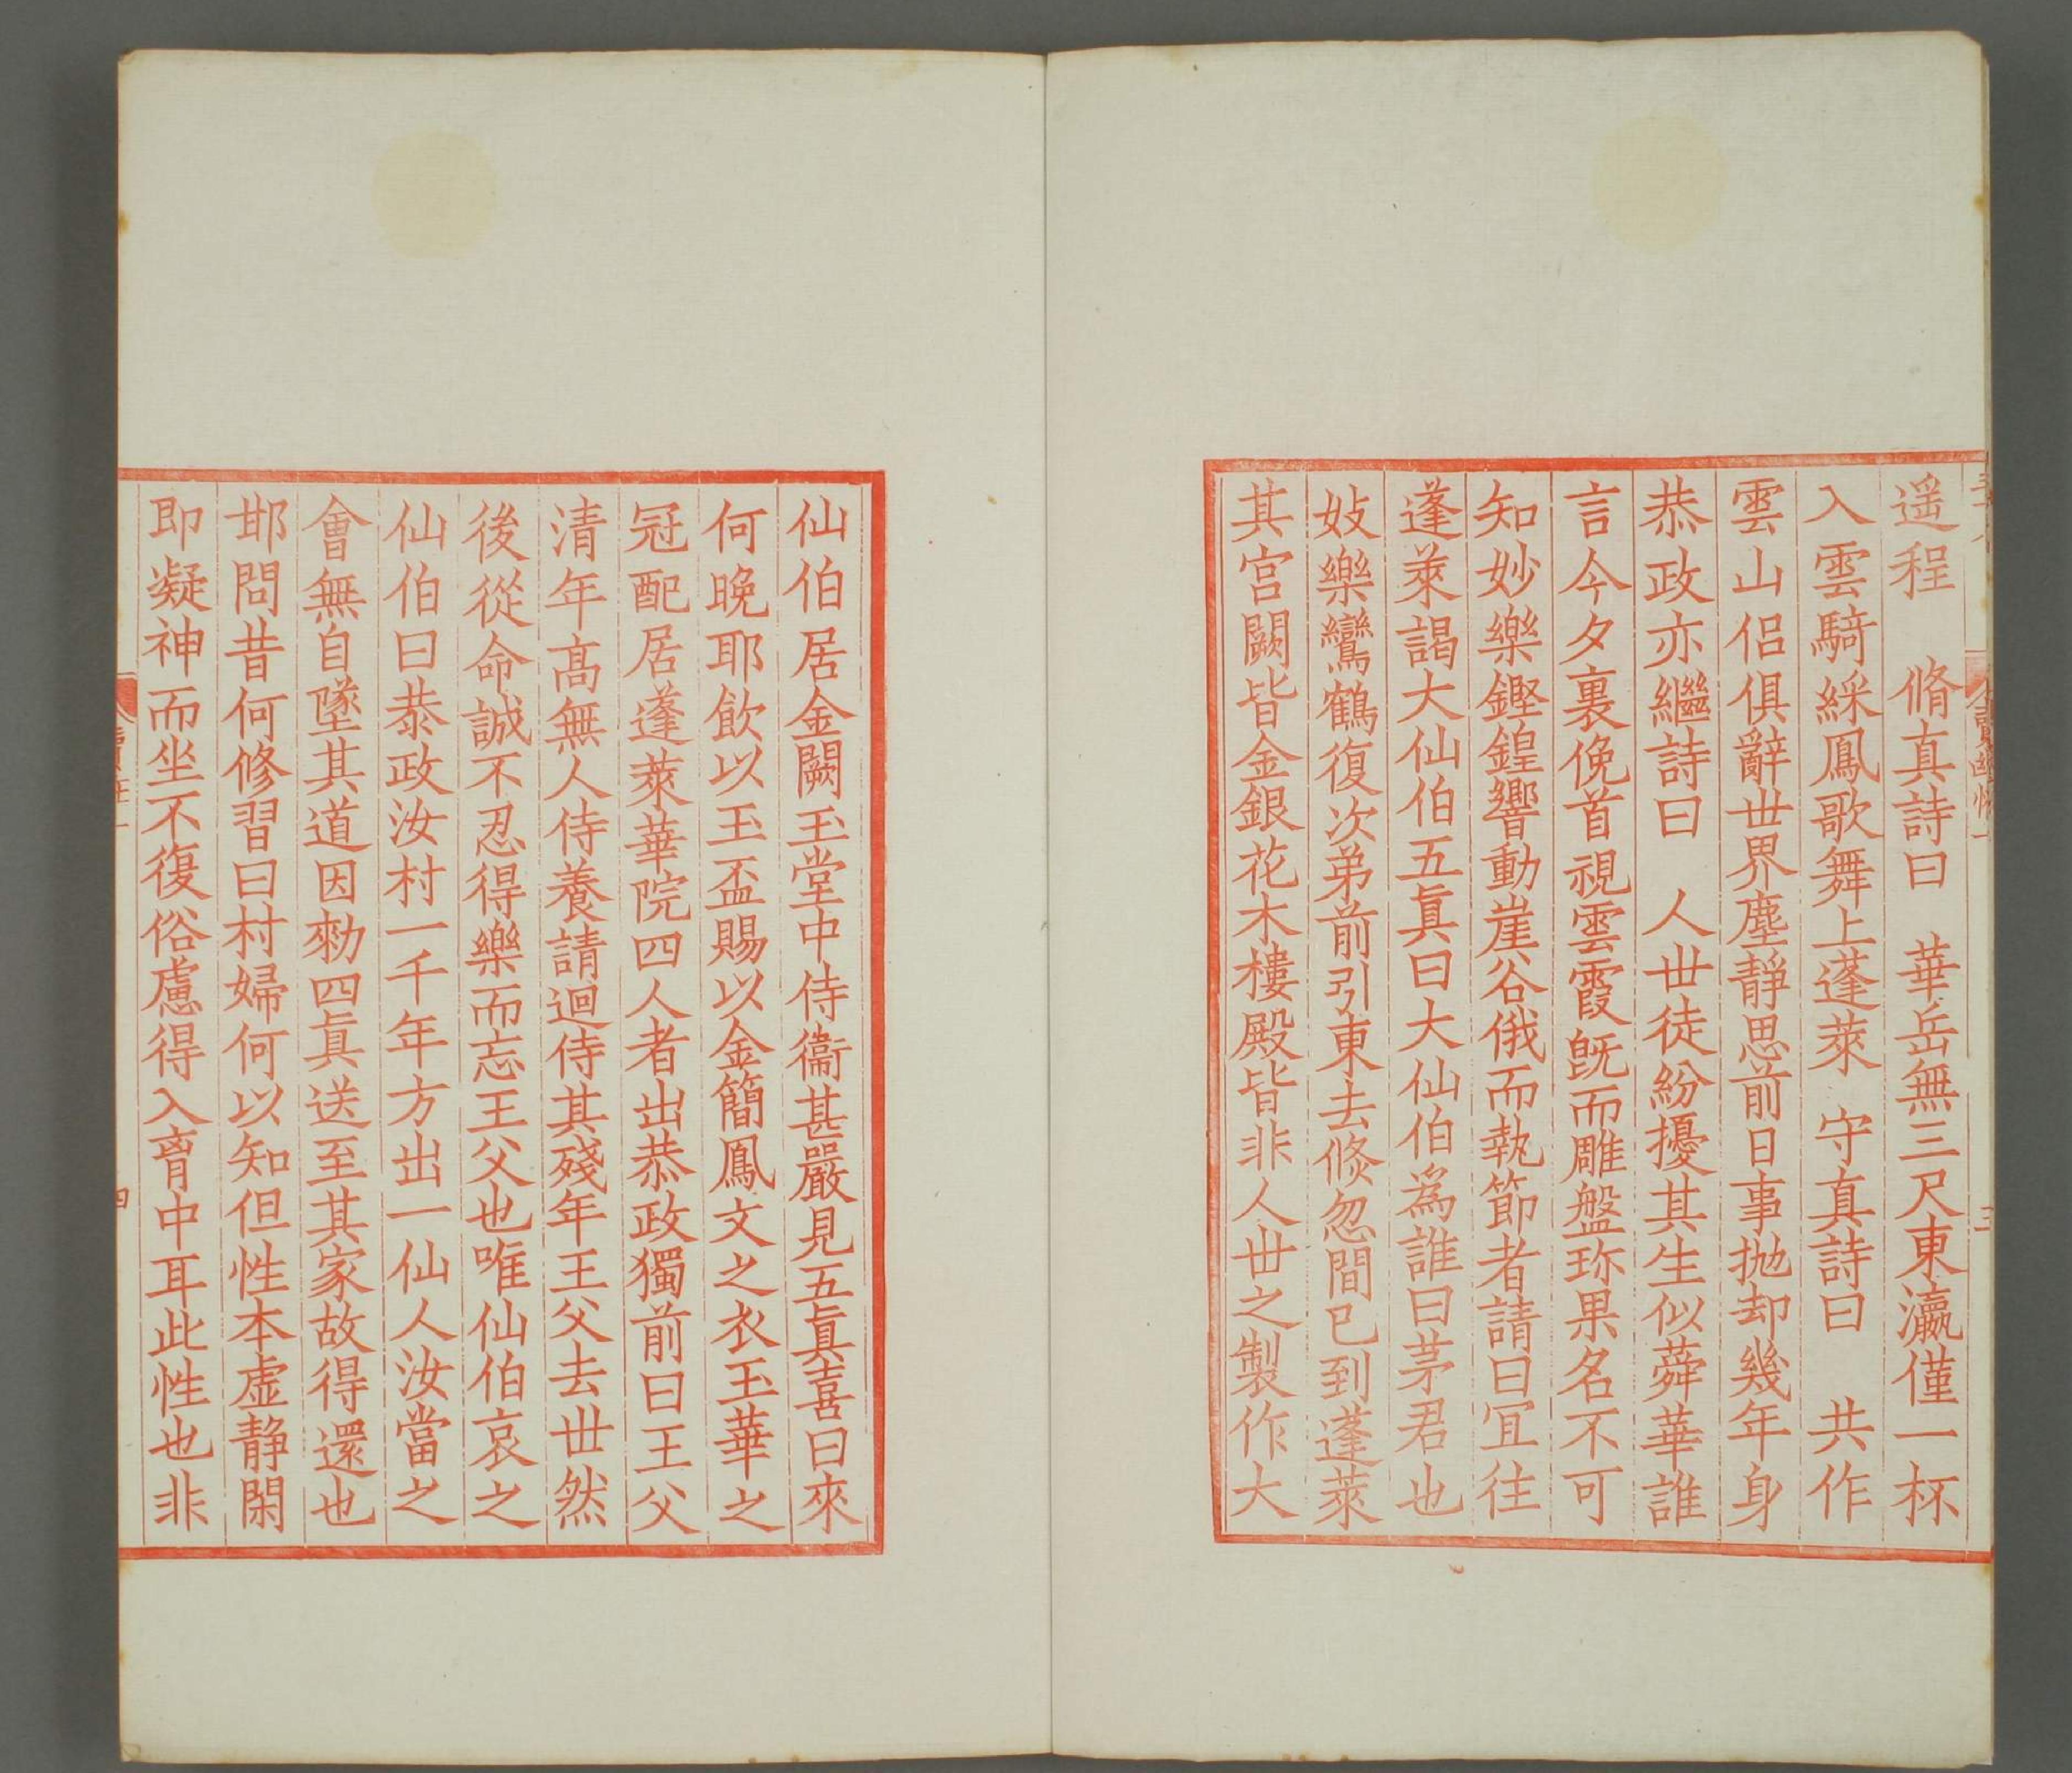 遥程　脩真詩曰　華岳無三尺東瀛僅一杯
入雲騎綵鳳歌舞上蓬萊　守真詩曰　共作
雲山侶俱辭世界塵靜思前日事抛却幾年身
恭政亦繼詩曰　人世徒紛擾其生似蕣華誰
言今夕裏俛首視雲霞旣而雕盤珎果名不可
知妙樂鏗鍠響動崖谷俄而執節者請曰冝往
蓬萊謁大仙伯五真曰大仙伯為誰曰茅君也
妓樂鸞鶴復次弟前引東去倐忽間已到蓬萊
其宫闕皆金銀花木樓殿皆非人世之製作大
仙伯居金闕玉堂中侍衞甚嚴見五真喜曰來
何晚耶飲以玉盃賜以金簡鳳文之衣玉華之
冠配居蓬萊華院四人者出恭政獨前曰王父
清年髙無人侍養請迴侍其殘年王父去世然
後從命誠不忍得樂而忘王父也唯仙伯哀之
仙伯曰恭政汝村一千年方出一仙人汝當之
會無自墜其道因勑四真送至其家故得還也
邯問昔何修習曰村婦何以知但性本虛静閑
即凝神而坐不復俗慮得入胷中耳此性也非
四